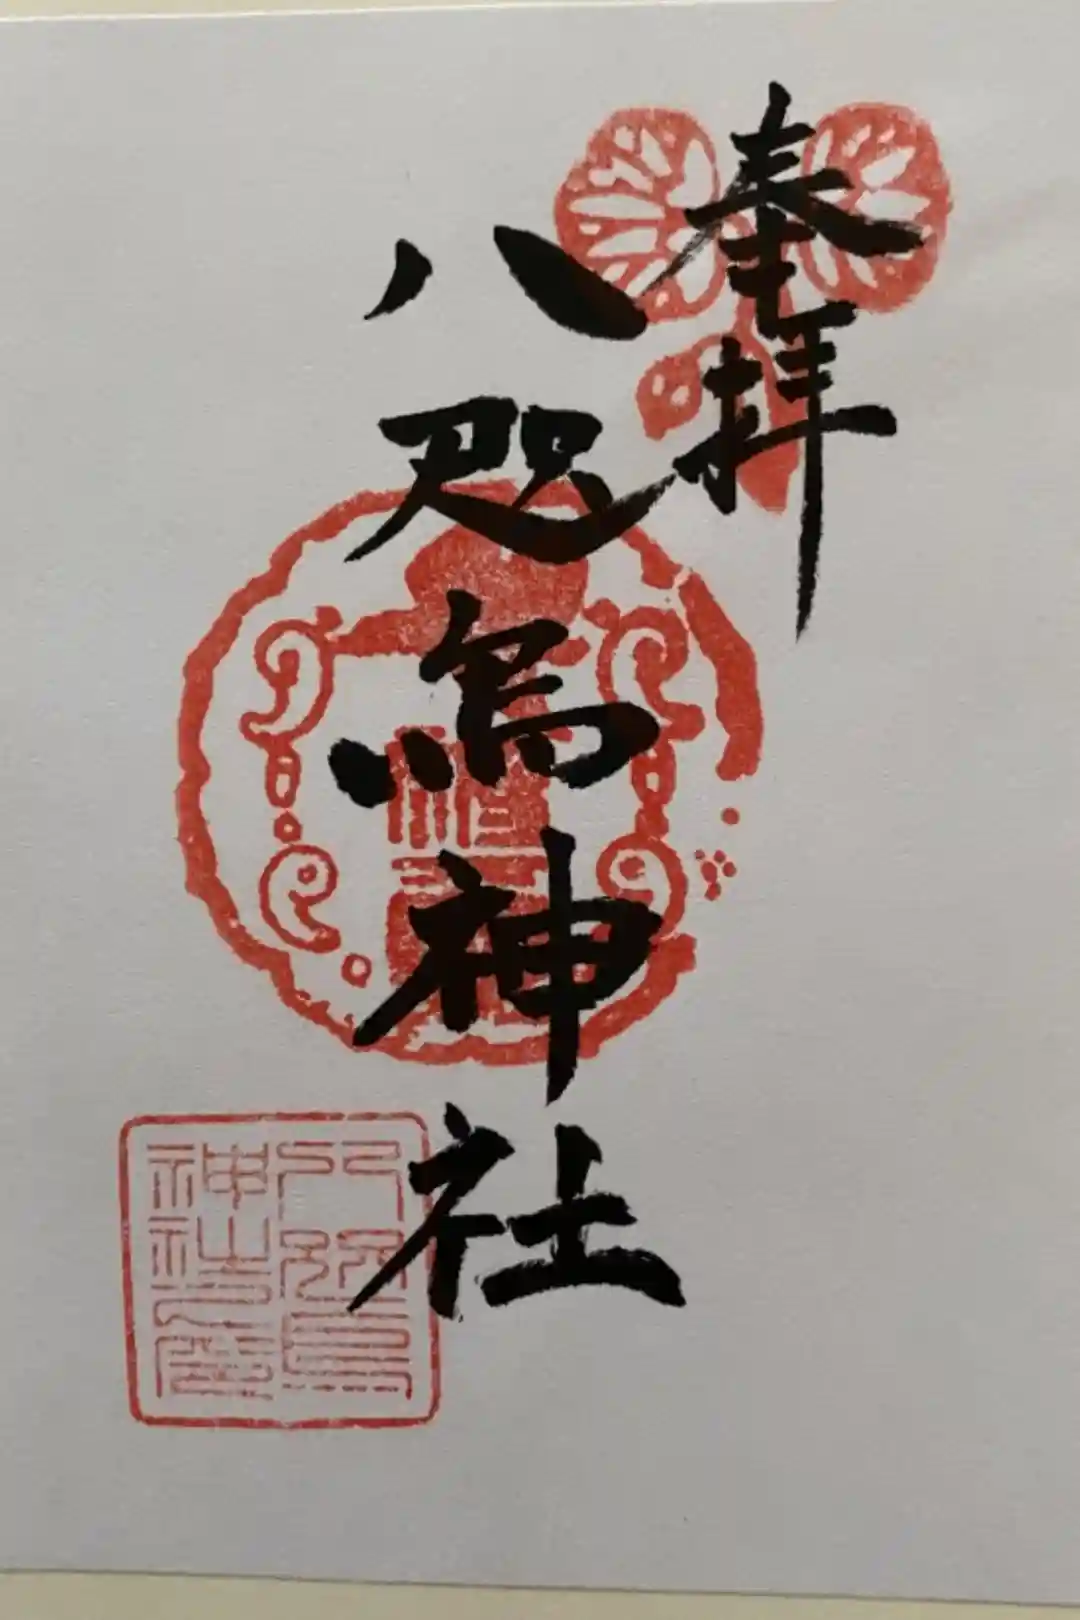 奉拝
八咫烏神社
八咫烏
神社之璽